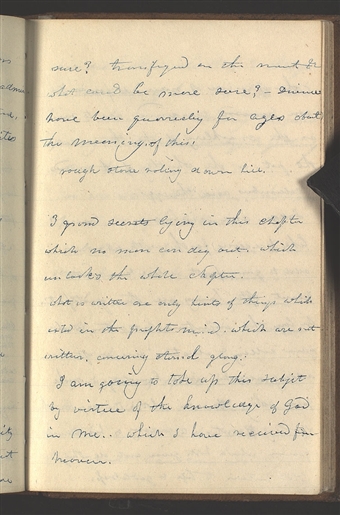 sure? transfigured on the mount &
what could be more sure? - Divines
have been quarreling for ages about
the meaning of this.
rough stone roling down hill.
3 grand secrets lying in this chapter
which no man can dig out. which
unlocks the whole chapter.
what is written are only hints of things which
exist in the prophets mind. which are not
written. concerning eternal glory.
I am going to take up this subject
by virtue of the knowledge of God
in me.. which I have received from
heaven.